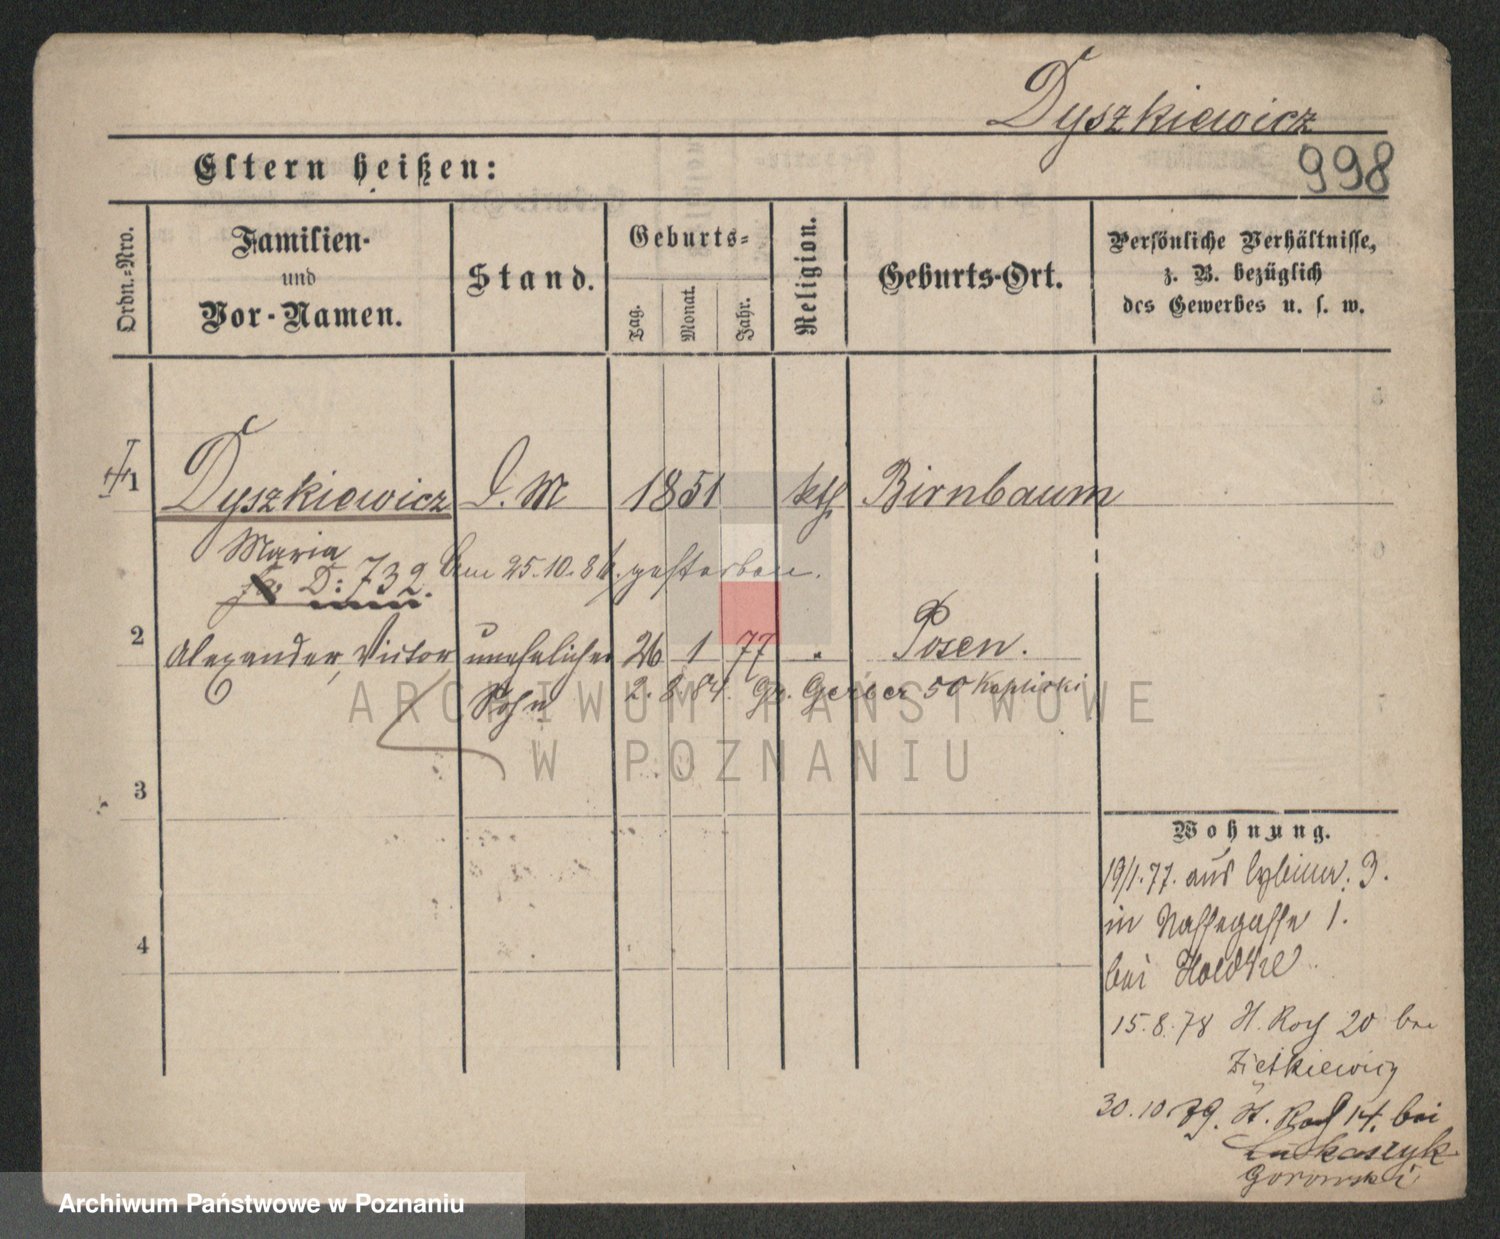 Dyszkiewicz
998
Eltern heißen:
Ordn.-Nro.
Familien-
und
Vor-Namen.
Stand.
Geburts-
Tag.
Monat.
Jahr.
Religion.
Geburts-Ort.
Persönliche Verhältnisse,
z. B. bezüglich
des Gewerbes u. s. w.
1 Dyszkiewicz D. M 1851 kth Birnbaum
Maria
D: 732.
Am 25.10.84. gestorben.
2 Alexander, Victor unehelicher 26 1 77 Posen.
Sohn 2. 8. 84. Gr. Gerber 50
ARCHIWUM PAŃSTWOWE
W POZNANIU
3
4
Wohnung.
19/1.77. aus 3.
in Nassegasse 1.
bei
15.8.78 St. Roch 20 bei
Zietkiewicz
30.10.79. St. Roch 14. bei
Lukaszyk
Gorowski
Archiwum Państwowe w Poznaniu